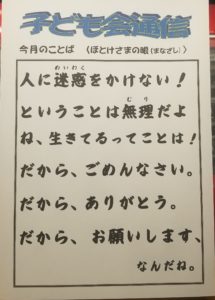 子ども会通信
今月のことば （ほとけさまの眼（まなざし））
人に迷惑をかけない！
ということは無理だよ
ね、生きてるってことは！
だから、ごめんなさい。
だから、ありがとう。
だから、お願いします、
なんだね。